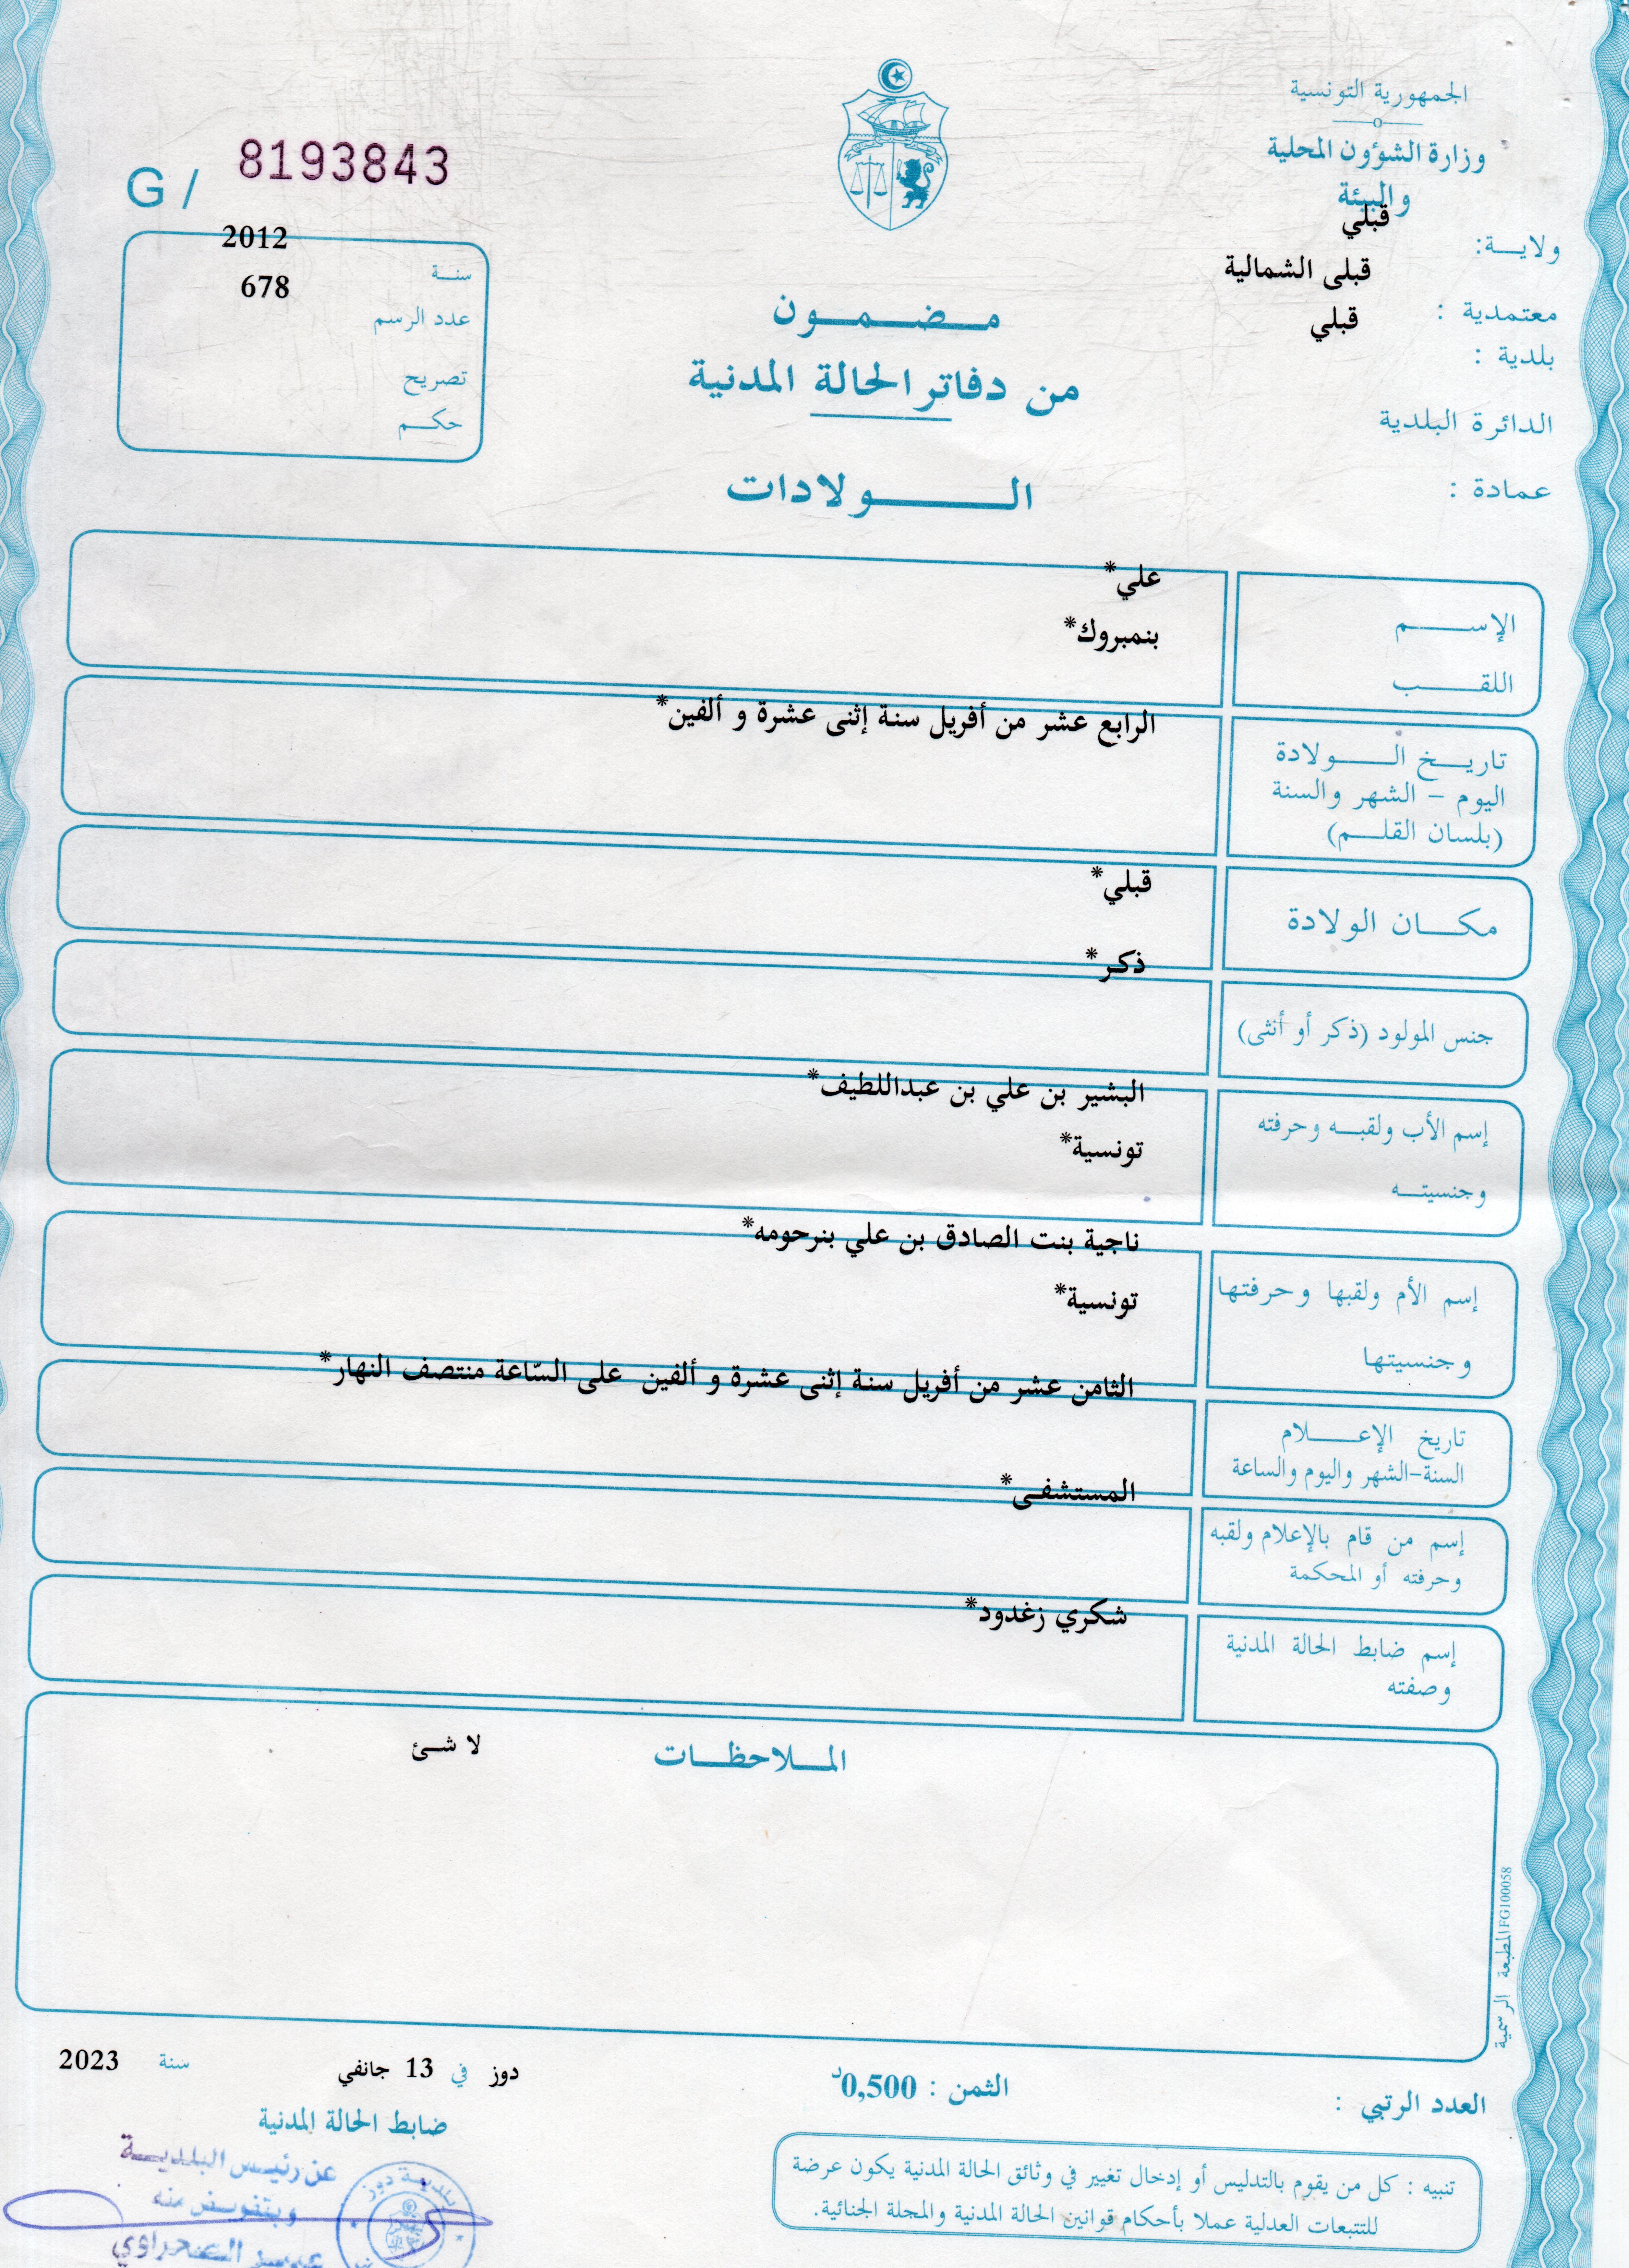 الجمهورية التونسية
وزارة الشؤون المحلية
والبيئة
ولايـــة: قبلي
معتمدية : قبلى الشمالية
بلدية : قبلي
الدائرة البلدية
عمادة :
G / 8193843
سنــة 2012
عدد الرسم 678
تصريح
حكــم
مـــضـــمـــون
من دفاتر الحالة المدنية
الـــــــولادات
الإســـــم علي*
اللقــــب بنمبروك*
تاريــــخ الـــــولادة الرابع عشر من أفريل سنة إثنى عشرة و ألفين*
اليوم – الشهر والسنة
(بلسان القلـــم)
مكـــان الولادة قبلي*
جنس المولود (ذكر أو أنثى) ذكر*
إسم الأب ولقبــه وحرفته البشير بن علي بن عبداللطيف*
وجنسيتــه تونسية*
إسم الأم ولقبها وحرفتها ناجية بنت الصادق بن علي بنرحومه*
وجنسيتها تونسية*
تاريخ الإعـــــلام الثامن عشر من أفريل سنة إثنى عشرة و ألفين على السّاعة منتصف النهار*
السنة-الشهر واليوم والساعة
إسم من قام بالإعلام ولقبه المستشفى*
وحرفته أو المحكمة
إسم ضابط الحالة المدنية شكري زغدود*
وصفته
المــلاحظــات لا شئ
المطبعة الرسمية FG100058
العدد الرتبي :
الثمن : 0,500د
دوز في 13 جانفي سنة 2023
ضابط الحالة المدنية
عن رئيــس البلديـــة
وبتفويــض منه
بلدية دوز
تنبيه : كل من يقوم بالتدليس أو إدخال تغيير في وثائق الحالة المدنية يكون عرضة
للتتبعات العدلية عملا بأحكام قوانين الحالة المدنية والمجلة الجنائية.